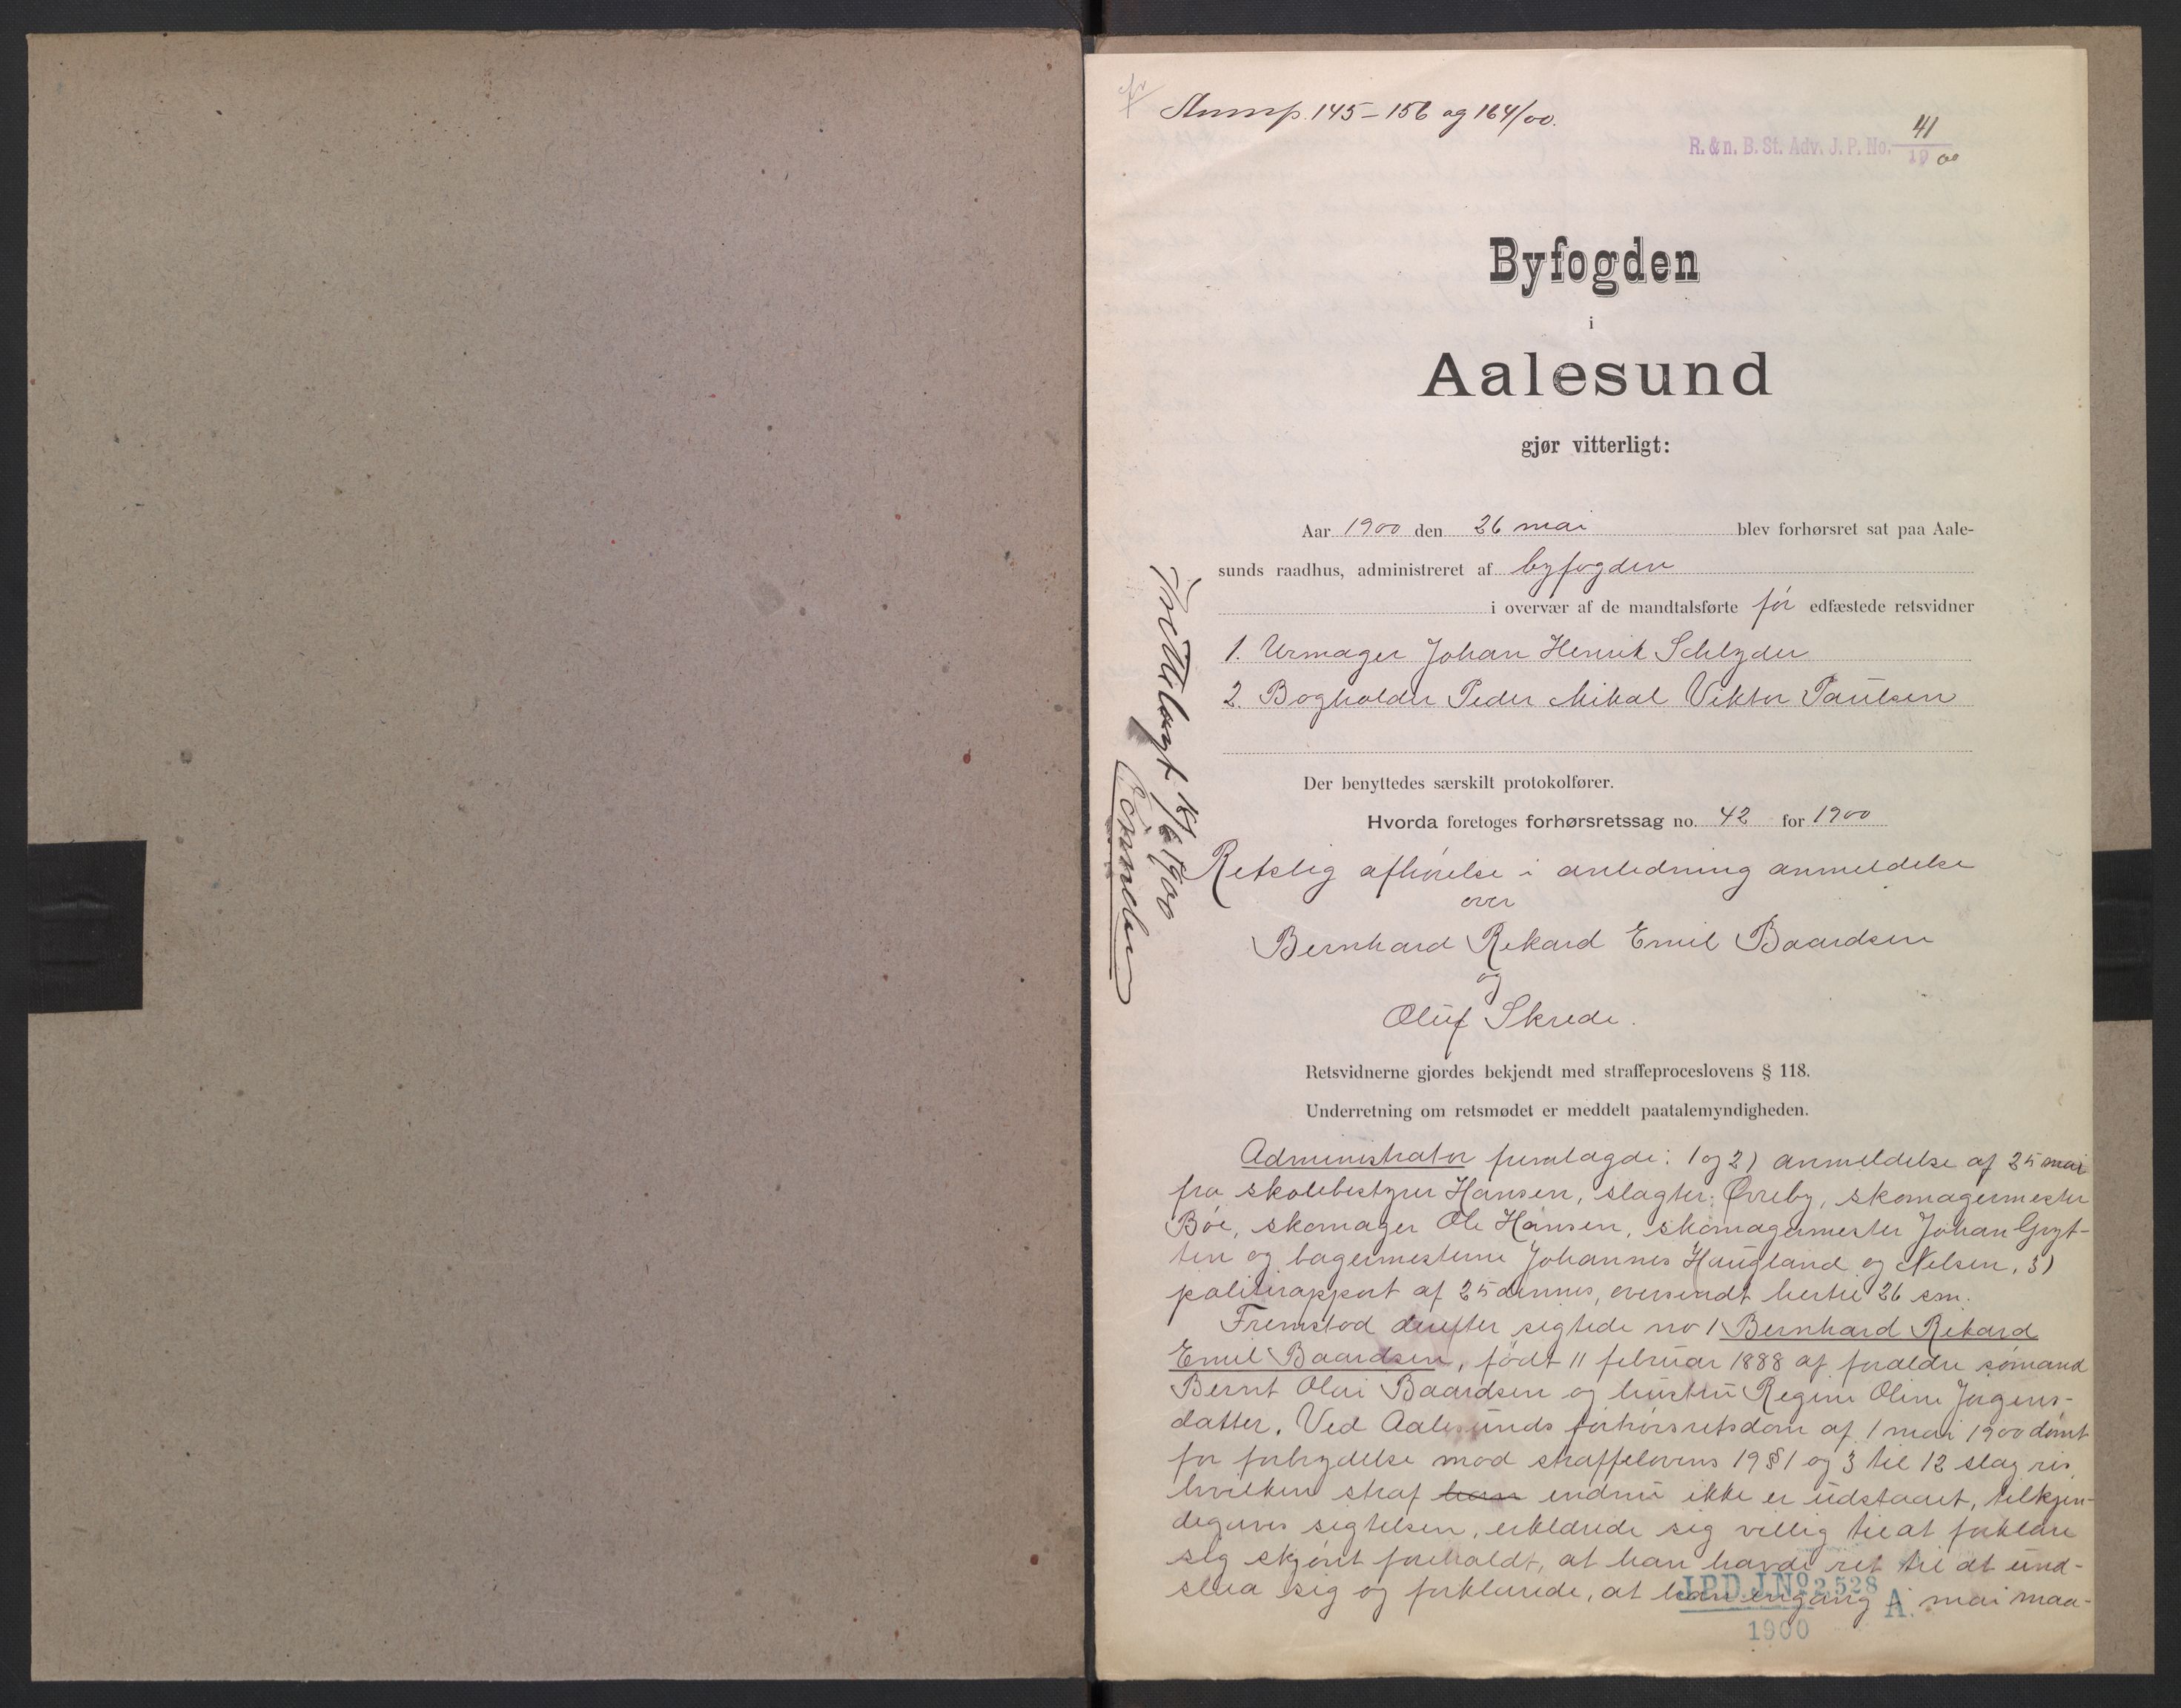 Stump. 145-156 og 164/00.
R. & n. B. St. Adv. J. P. No. 41/1900
Byfogden
i
Aalesund
gjør vitterligt:
Aar 1900 den 26 mai blev forhørsret sat paa Aale-
sunds raadhus, administreret af byfogden
i overvær af de mandtalsførte før edfæstede retsvidner
1. Urmager Johan Henrik Schlyder
2. Bogholder Peder Mikal Viktor Paulsen
Der benyttedes særskilt protokolfører.
Hvorda foretoges forhørsretssag no. 42 for 1900
Retslig afhørelse i anledning anmeldelse
over
Bernhard Rekard Emil Baardsen
og
Oluf Skrede.
Retsvidnerne gjordes bekjendt med straffeproceslovens § 118.
Underretning om retsmødet er meddelt paatalemyndigheden.
Administrator fremlagde: 1 og 2) anmeldelse af 25 mai
fra skolebestyrer Hansen, slagter Øvreby, skomagermester
Bøe, skomager Ole Hansen, skomagermester Johan Gryt-
ten og bagermesterne Johannes Haugland og Nelsen, 3)
politirapport af 25 dennes, oversendt hertil 26 sm.
Fremstod derefter sigtede no 1 Bernhard Rekard
Emil Baardsen, født 11 februar 1888 af forældre sømand
Bernt Olai Baardsen og hustru Regine Oline Jørgens-
datter. Ved Aalesunds forhørsretsdom af 1 mai 1900 dømt
for forbrydelse mod straffelovens 19 § 1 og 3 til 12 slag ris,
hvilken straf han endnu ikke er udstaaet, tilkjen-
degaves sigtelsen, erklærede sig villig til at forklare
sig skjønt foreholdt, at han havde ret til at und-
slaa sig og forklarede, at han engang i mai maa-
J.P.D. J. No 2528 A.
1900
1900